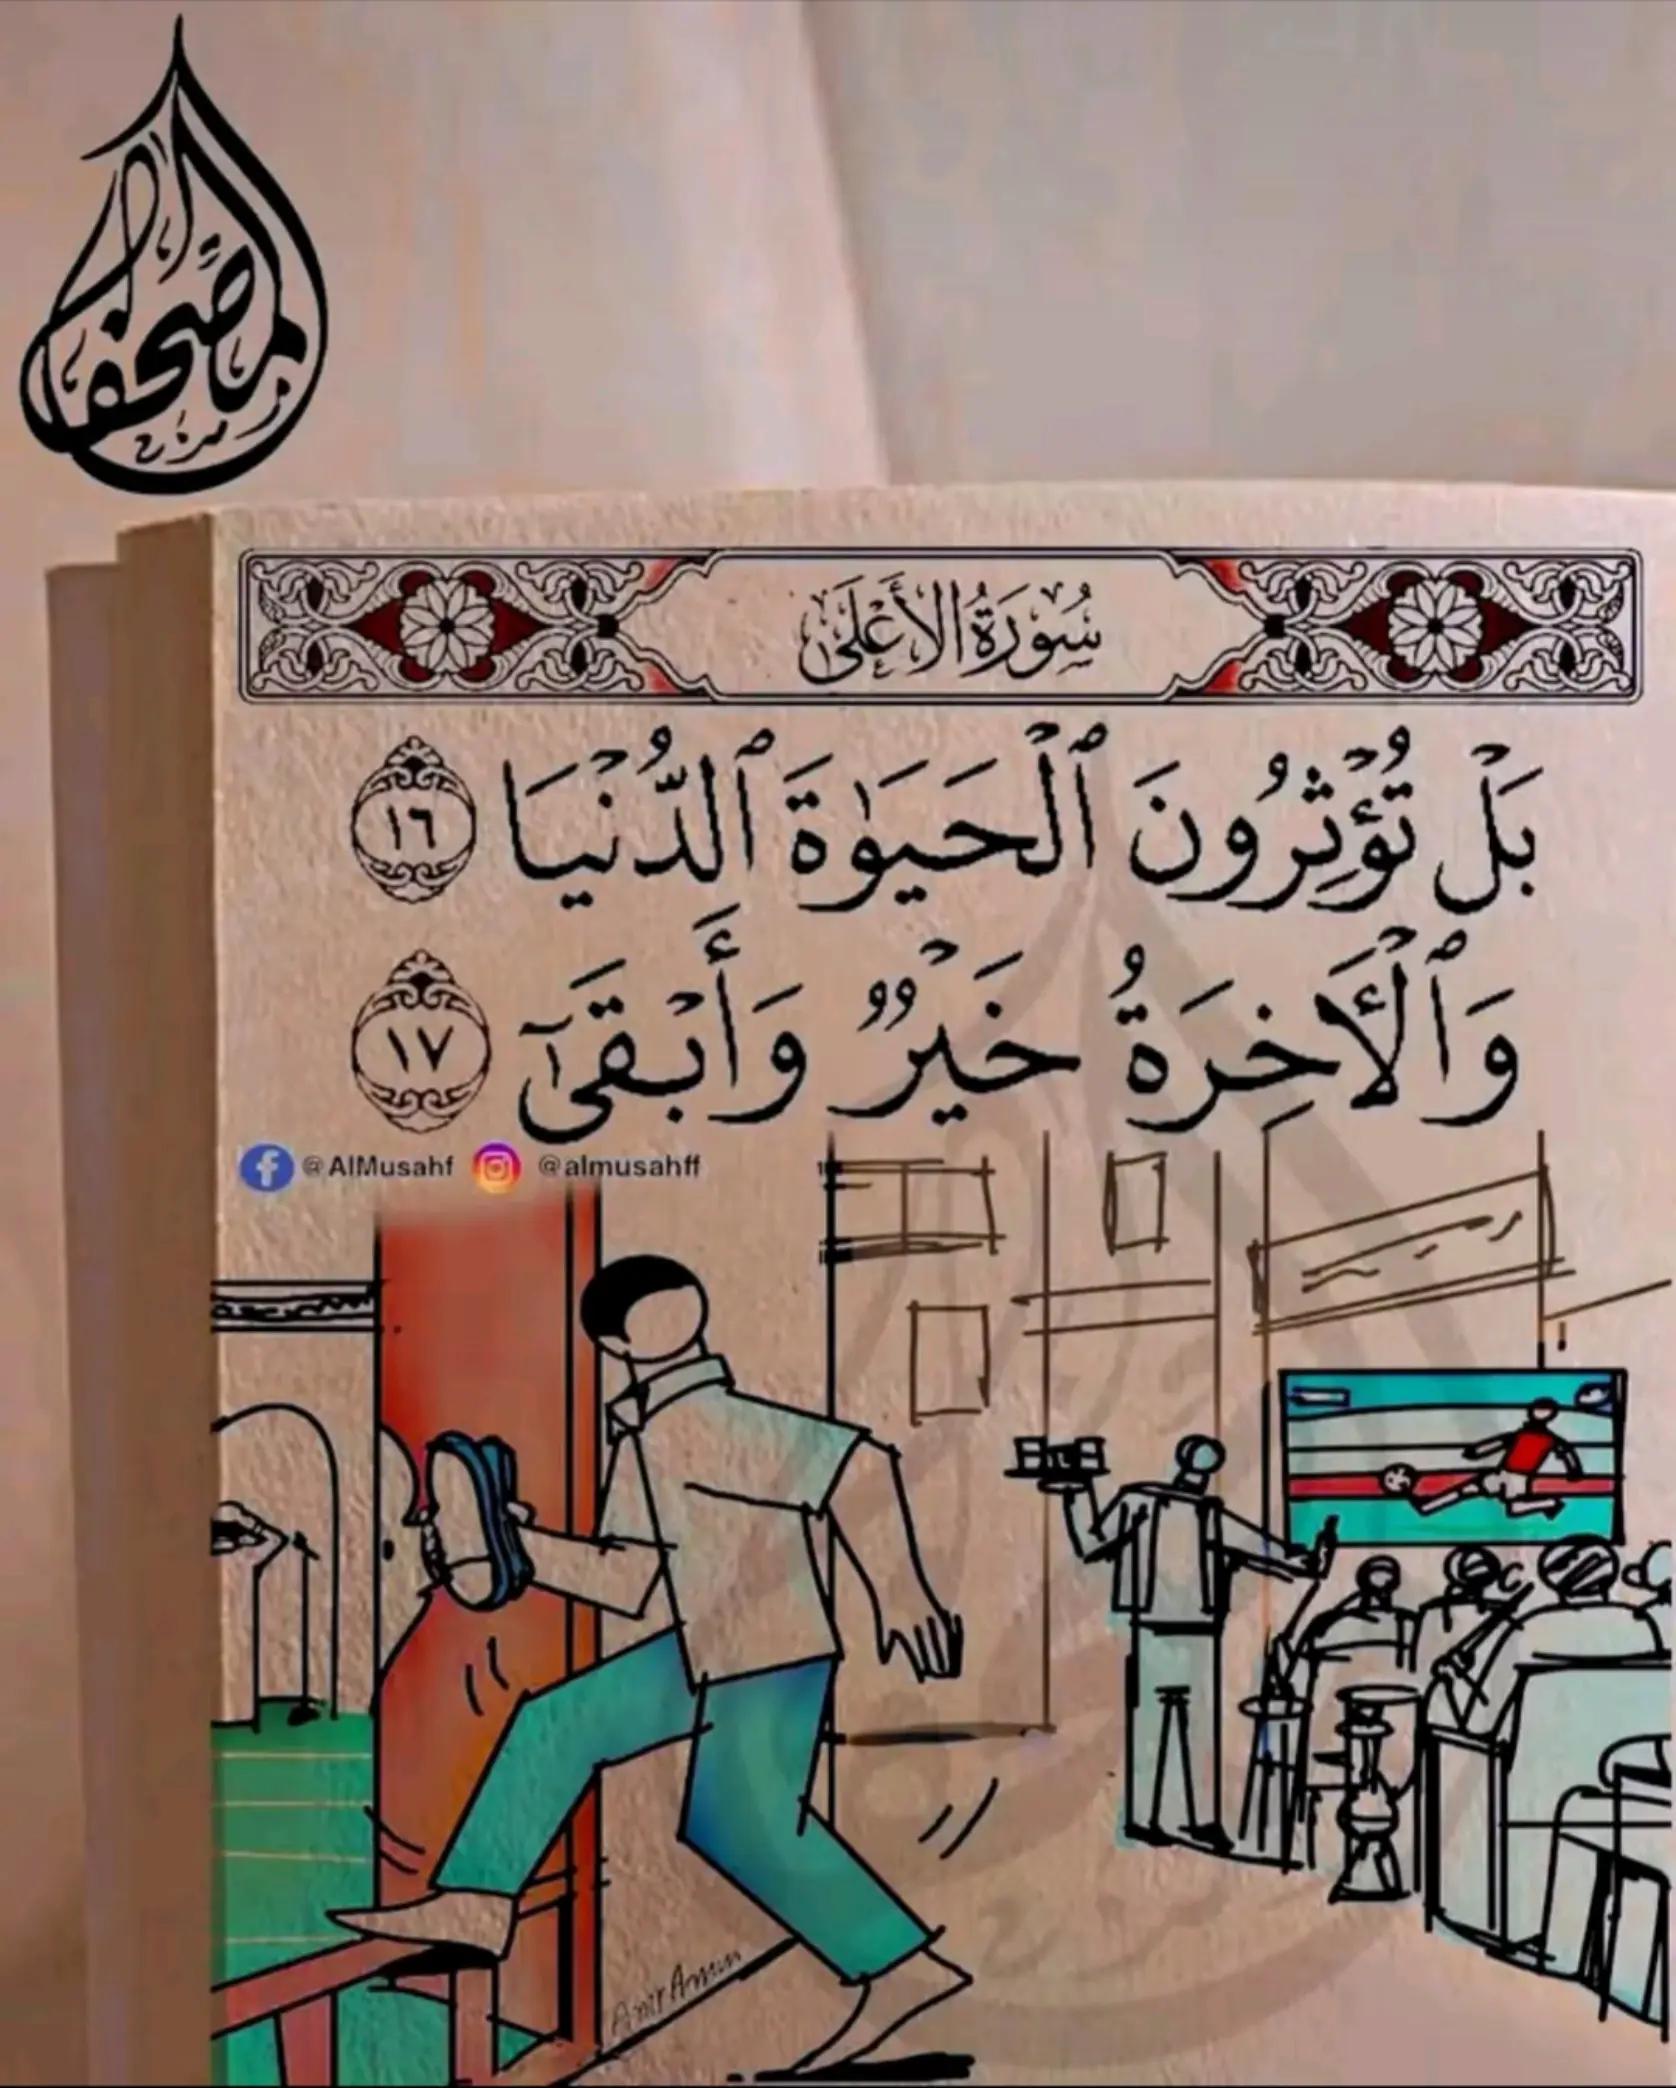 المصحف
سُورَةُ الأَعْلَى
بَلْ تُؤْثِرُونَ ٱلْحَيَوٰةَ ٱلدُّنْيَا ١٦
وَٱلْأَخِرَةُ خَيْرٌ وَأَبْقَىٰٓ ١٧
@AlMusahf @almusahff
Amr Amin